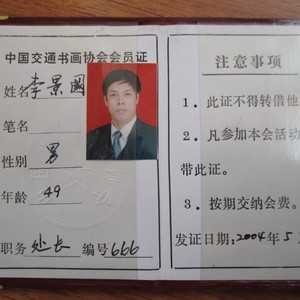 中国交通书画协会会员证
姓名 李景國
笔名
性别 男
年龄 49
职务 处长 编号 666
注意事项
1．此证不得转借他
2．凡参加本会活动
带此证。
3．按期交纳会费。
发证日期：2004年5